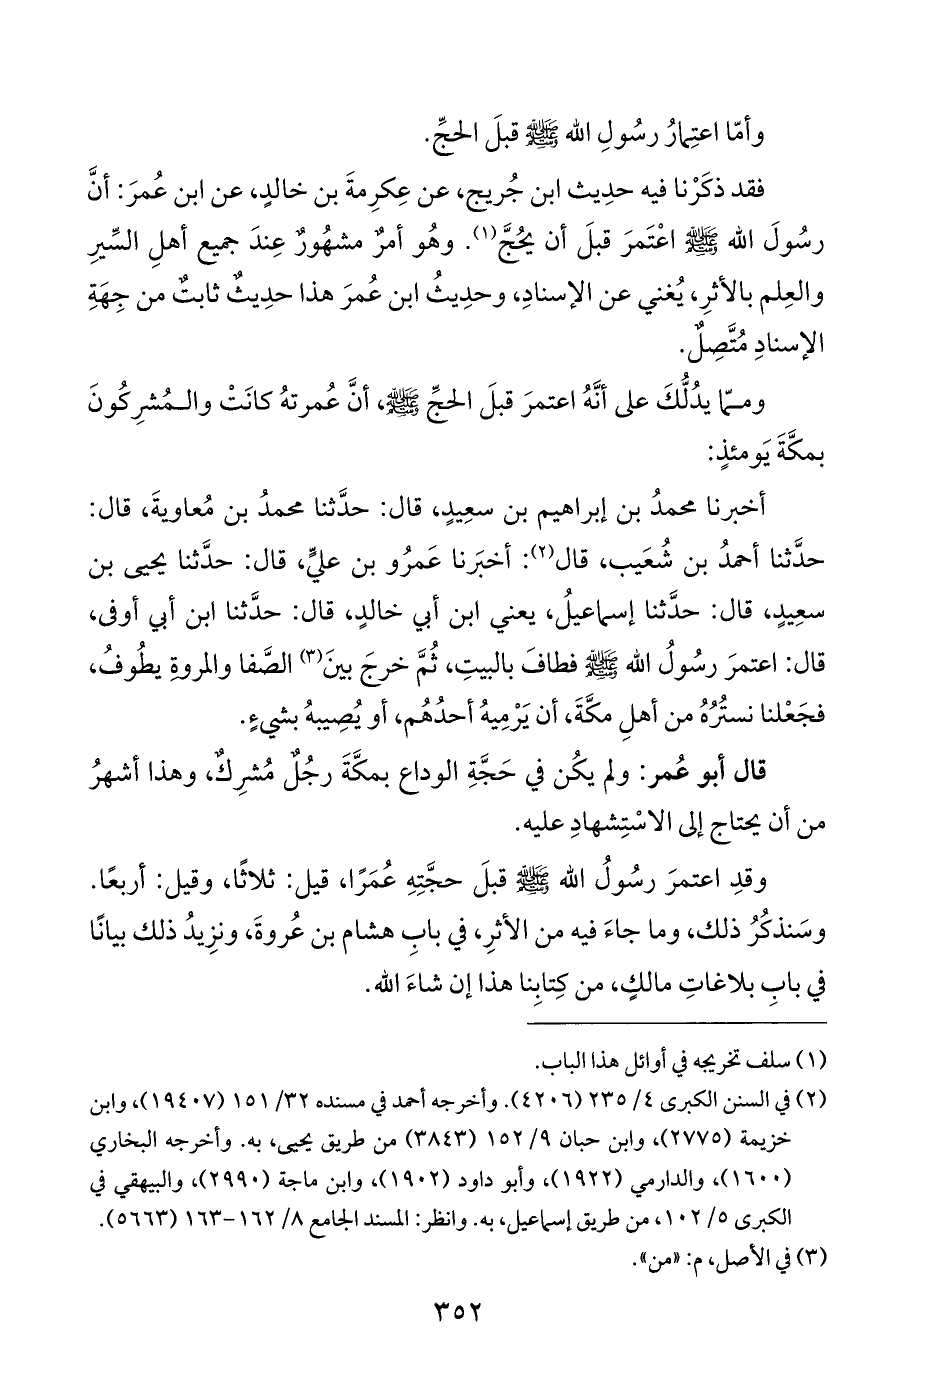 وأمّا اعتِمارُ رسُولِ الله ﷺ قبلَ الحجِّ.
فقد ذكَرْنا فيه حدِيث ابن جُريج، عن عِكرِمةَ بن خالدٍ، عن ابن عُمرَ: أنَّ
رسُولَ الله ﷺ اعْتَمرَ قبلَ أن يحُجَّ(١). وهُو أمرٌ مشهُورٌ عِندَ جميع أهلِ السِّيرِ
والعِلم بالأثرِ، يُغني عن الإسنادِ، وحدِيثُ ابن عُمرَ هذا حدِيثٌ ثابتٌ من جِهَةِ
الإسنادِ مُتَّصِلٌ.
وممّا يدُلُّكَ على أنَّهُ اعتمرَ قبلَ الحجِّ ﷺ، أنَّ عُمرتهُ كانَتْ والـمُشرِكُونَ
بمكَّةَ يَومئذٍ:
أخبرنا محمدُ بن إبراهيم بن سعِيدٍ، قال: حدَّثنا محمدُ بن مُعاويةَ، قال:
حدَّثنا أحمدُ بن شُعَيب، قال(٢): أخبَرنا عَمرُو بن عليٍّ، قال: حدَّثنا يحيى بن
سعِيدٍ، قال: حدَّثنا إسماعيلُ، يعني ابن أبي خالدٍ، قال: حدَّثنا ابن أبي أوفى،
قال: اعتمرَ رسُولُ الله ﷺ فطافَ بالبيتِ، ثُمَّ خرجَ بينَ(٣) الصَّفا والمروةِ يطُوفُ،
فجَعْلنا نستُرُهُ من أهلِ مكَّةَ، أن يَرْمِيهُ أحدُهُم، أو يُصِيبهُ بشيءٍ.
قال أبو عُمر: ولم يكُن في حَجَّةِ الوداع بمكَّةَ رجُلٌ مُشرِكٌ، وهذا أشهرُ
من أن يحتاج إلى الاسْتِشهادِ عليه.
وقدِ اعتمرَ رسُولُ الله ﷺ قبلَ حجَّتِهِ عُمَرًا، قيل: ثلاثًا، وقيل: أربعًا.
وسَنذكُرُ ذلك، وما جاءَ فيه من الأثرِ، في بابِ هشام بن عُروةَ، ونزِيدُ ذلك بيانًا
في بابِ بلاغاتِ مالكٍ، من كِتابِنا هذا إن شاءَ الله.
(١) سلف تخريجه في أوائل هذا الباب.
(٢) في السنن الكبرى ٤/ ٢٣٥ (٤٢٠٦). وأخرجه أحمد في مسنده ٣٢/ ١٥١ (١٩٤٠٧)، وابن
خزيمة (٢٧٧٥)، وابن حبان ٩/ ١٥٢ (٣٨٤٣) من طريق يحيى، به. وأخرجه البخاري
(١٦٠٠)، والدارمي (١٩٢٢)، وأبو داود (١٩٠٢)، وابن ماجة (٢٩٩٠)، والبيهقي في
الكبرى ٥/ ١٠٢، من طريق إسماعيل، به. وانظر: المسند الجامع ٨/ ١٦٢-١٦٣ (٥٦٦٣).
(٣) في الأصل، م: «من».
٣٥٢